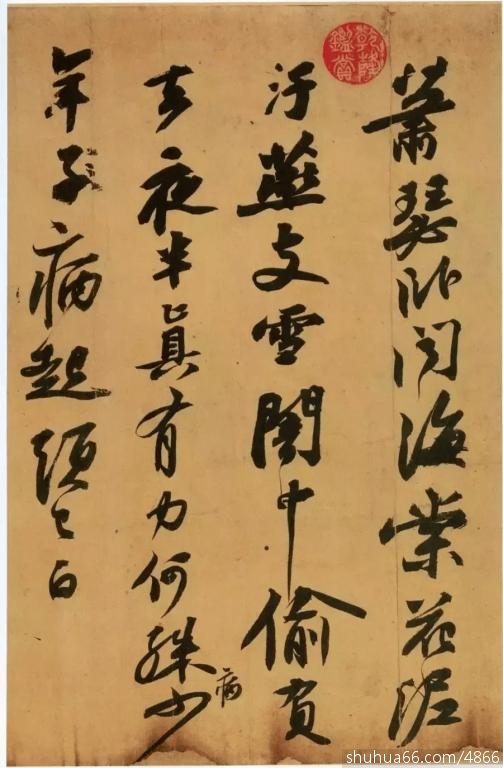 乾隆鑑賞
蕭瑟卧聞海棠花泥
汙燕支雪闇中偷負
去夜半眞有力何殊少
病
年子病起頭已白
shuhua66.com/4866